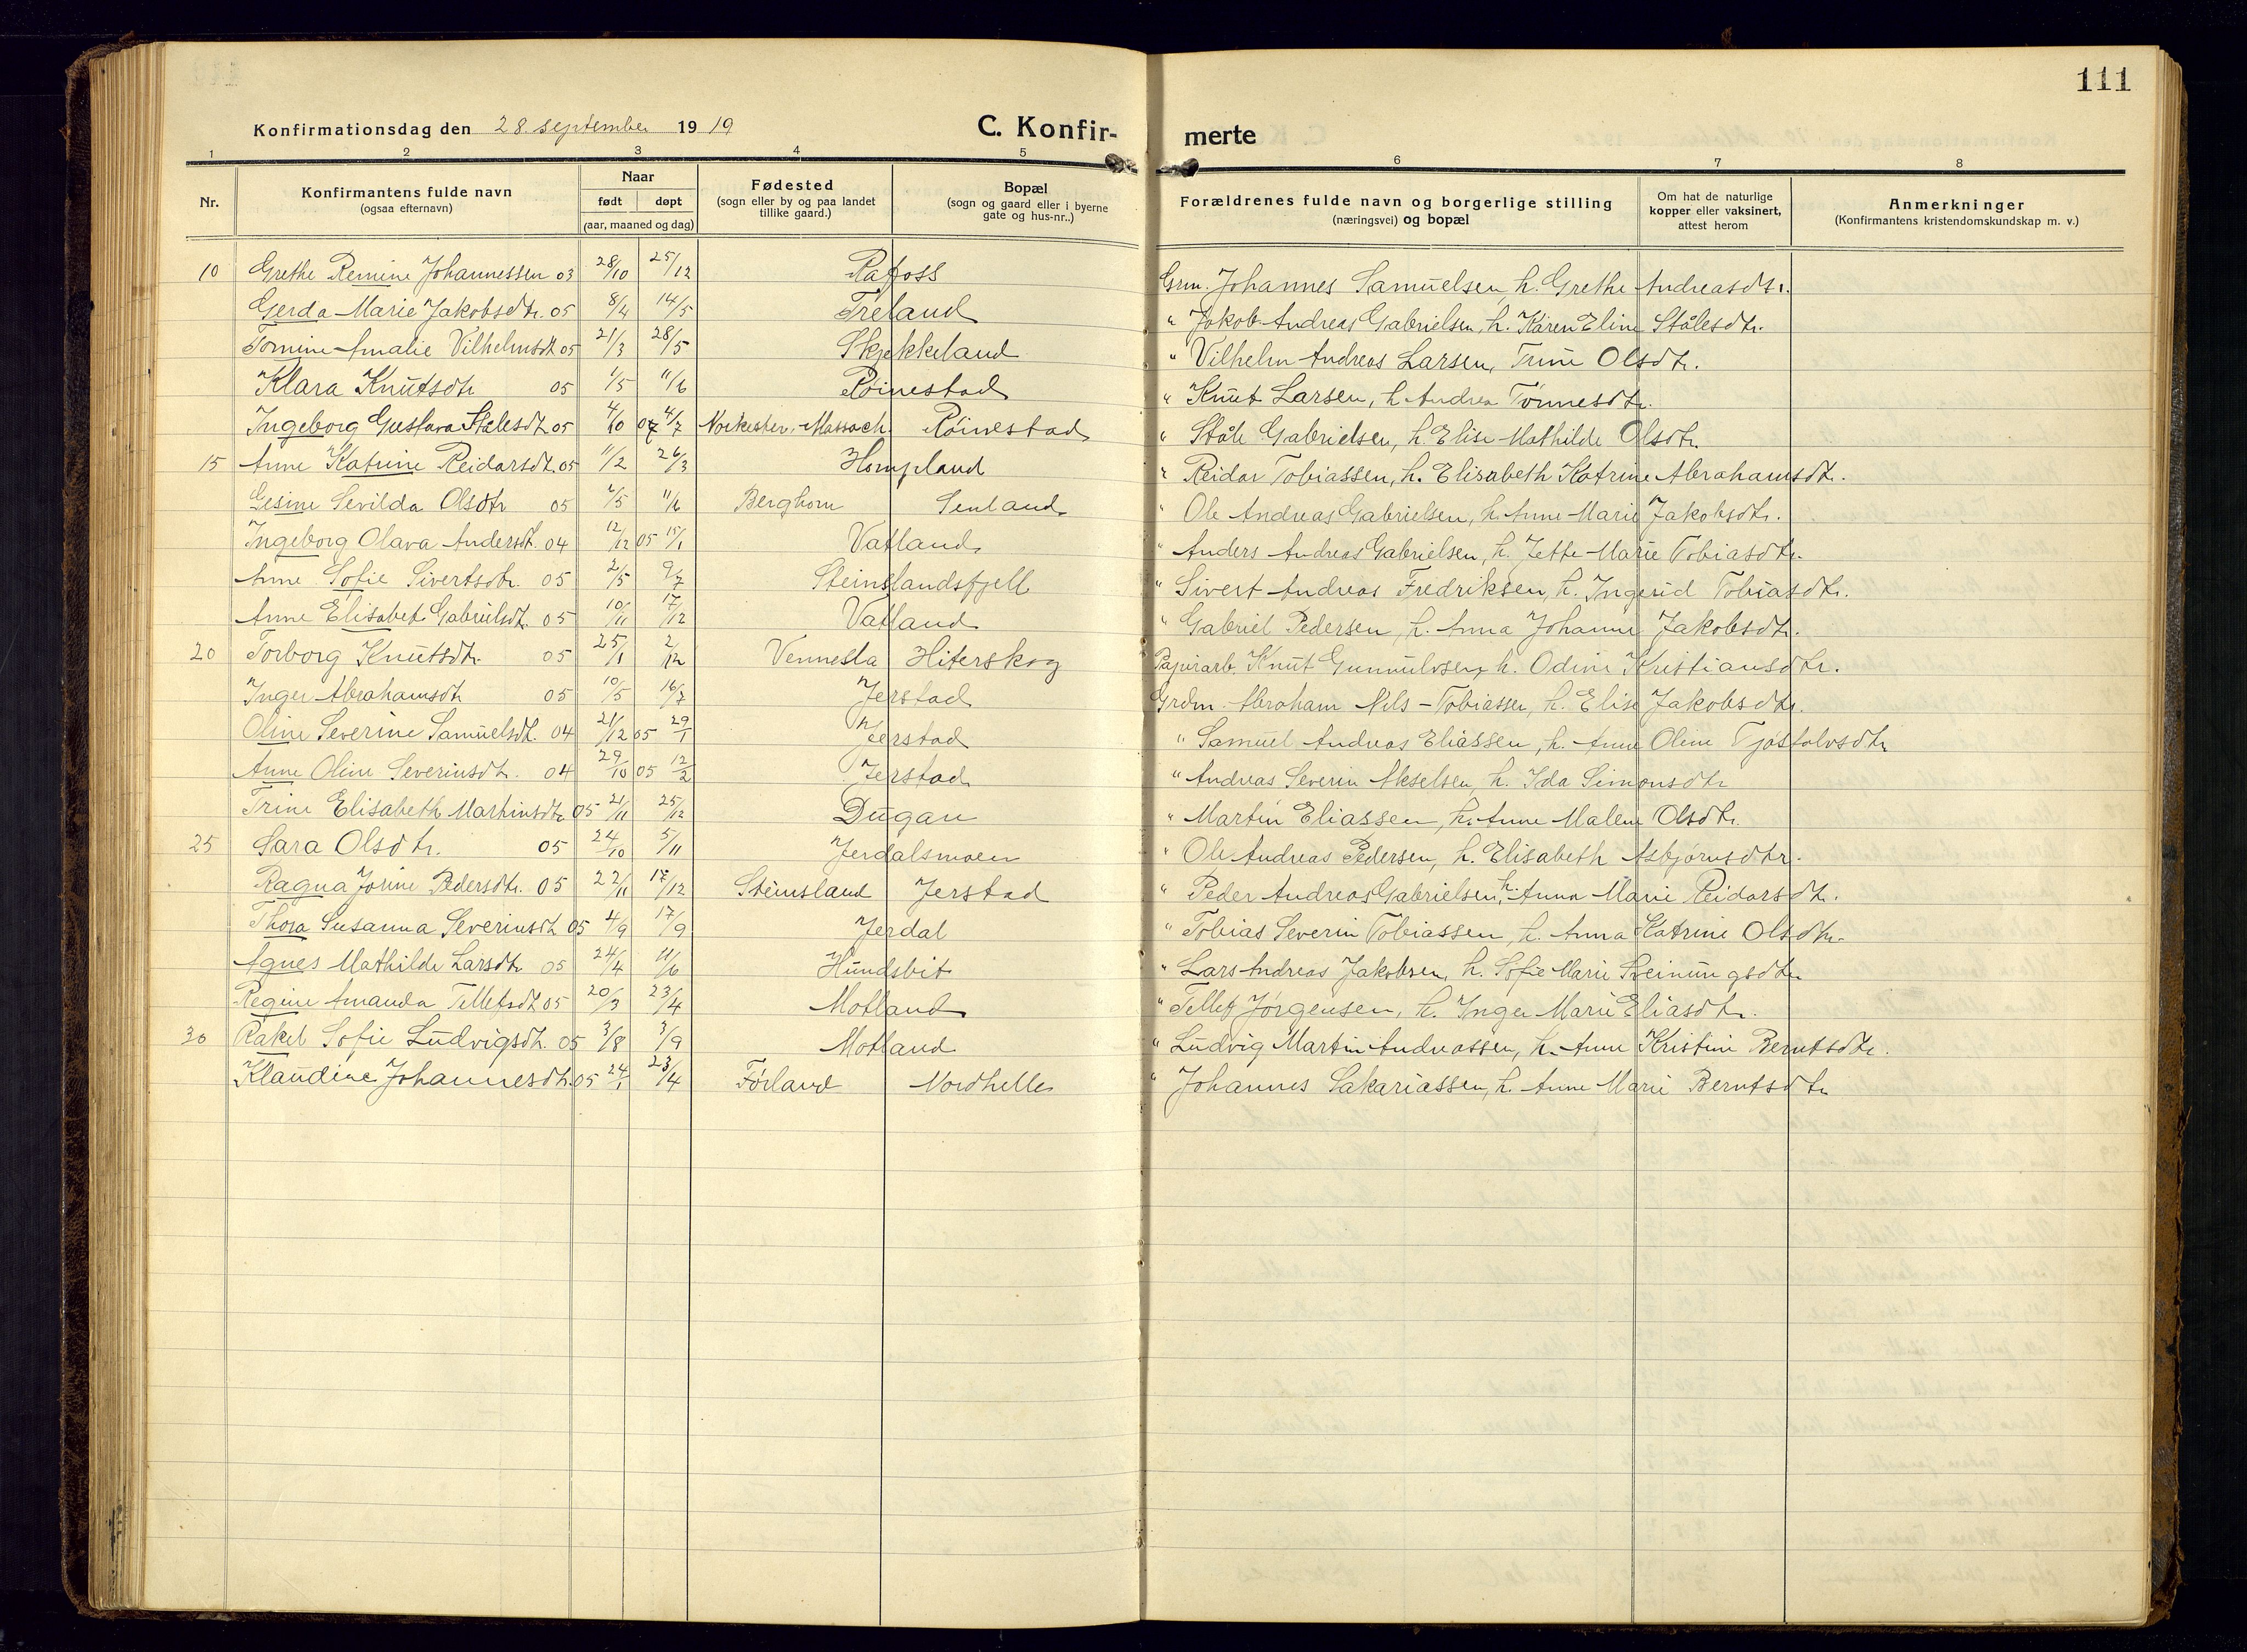 111
Konfirmationsdag den 28. september 1919 C. Konfir- merte
1 2 3 4 5 6 7 8
Nr. Konfirmantens fulde navn (ogsaa efternavn) Naar født døpt (aar, maaned og dag) Fødested (sogn eller by og paa landet tillike gaard.) Bopæl (sogn og gaard eller i byerne gate og hus-nr..) Forældrenes fulde navn og borgerlige stilling (næringsvei) og bopæl Om hat de naturlige kopper eller vaksinert, attest herom Anmerkninger (Konfirmantens kristendomskundskap m. v.)
10 Grethe Remine Johannessen 03 28/10 25/12 Rafoss Grm. Johannes Samuelsen, h. Grethe Andreasdtr.
Gerda Marie Jakobsdtr. 05 8/4 14/5 Treland " Jakob Andreas Gabrielsen, h. Karen Eline Stålesdtr.
Tomine Amalie Vilhelmsdt 05 21/3 28/5 Skjekkeland " Vilhelm Andreas Larsen, Trine Olsdtr.
Klara Knutsdtr 05 1/5 11/6 Røinestad " Knut Larsen, h. Andrea Tønnesdtr.
Ingeborg Gustava Stålesdt 05 4/10 07 4/7 Røinestad " Ståle Gabrielsen, h. Elise Mathilde Olsdtr.
15 Anne Katrine Reidarsdt. 05 11/2 26/3 Hompland " Reidar Tobiassen, h. Elisabeth Katrine Abrahamsdtr.
Gesine Sevilda Olsdtr 05 2/5 11/6 Berghom Senland " Ole Andreas Gabrielsen, h. Anne Marie Jakobsdtr.
Ingeborg Olava Andersdt. 04 12/12 05 15/1 Vatland " Anders Andreas Gabrielsen, h. Jette Marie Tobiasdtr.
Anne Sofie Sivertsdtr. 05 2/5 9/7 Steinslandsfjell " Sivert Andreas Fredriksen, h. Ingerid Tobiasdtr.
Anne Elisabet Gabrielsdt. 05 10/11 17/12 Vatland " Gabriel Pedersen, h. Anna Johanne Jakobsdtr.
20 Torborg Knutsdtr. 05 25/1 2/12 Vennesla Hiterskog Papirarb. Knut Gunnulvsen, h. Odine Kristiansdtr.
Inger Abrahamsdt 05 10/5 16/7 Jerstad Grdm. Abraham Nils-Tobiassen, h. Elise Jakobsdtr.
Oline Severine Samuelsdt. 04 21/12 05 29/1 Jerstad " Samuel Andreas Eliassen, h. Anne Oline Tjostolvsdtr
Anne Oline Severinsdt. 04 29/10 05 12/2 Jerstad " Andreas Severin Akselsen, h. Ida Simonsdtr
Trine Elisabeth Martinsdtr 05 21/11 25/12 Dugan " Martin Eliassen, h. Anne Malene Olsdtr.
25 Sara Olsdtr. 05 24/10 5/11 Jerdalsmoen " Ole Andreas Pedersen, h. Elisabeth Asbjørnsdtr.
Ragna Jorine Pedersdtr. 05 22/11 17/12 Steinsland Jerstad " Peder Andreas Gabrielsen, h. Anna Marie Reidarsdtr.
Thora Susanna Severinsdt 05 4/9 17/9 Jerdal " Tobias Severin Tobiassen, h. Anna Katrine Olsdtr.
Agnes Mathilde Larsdtr 05 24/4 11/6 Hundsbit " Lars Andreas Jakobsen, h. Sofie Marie Sveinungsdtr
Regine Amanda Tellefsdt 05 20/3 23/4 Motland " Tellef Jørgensen, h. Inger Marie Eliasdtr.
30 Rakel Sofie Ludvigsdt. 05 3/8 3/9 Motland " Ludvig Martin Andreassen, h. Anne Kristine Berntsdtr.
Klaudine Johannesdt. 05 24/1 23/4 Førland Nordhelle " Johannes Sakariassen, h. Anne Marie Berntsdtr